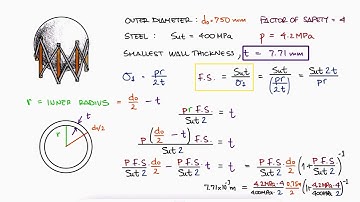 OUTER DIAMETER: do = 750 mm FACTOR OF SAFETY = 4
STEEL: Sut = 400 MPa P = 4.2 MPa
SMALLEST WALL THICKNESS, t = 7.71 mm
σ1 = pr/2t F.S. = Sut/σ1 = Sut/(pr/2t) = Sut 2t/pr
r = INNER RADIUS = do/2 - t
pr F.S./Sut 2 = t
t
r
do/2
p(do/2 - t) F.S./Sut 2 = t
P F.S./Sut 2 do/2 - P F.S./Sut 2 t = t = P F.S./Sut 2 do/2 (1 + P F.S./Sut 2)^-1
7.71×10^-3 m = 4.2 MPa·4/400 MPa·2 0.75m/2 (1 + 4.2 MPa·4/400 MPa·2)^-1